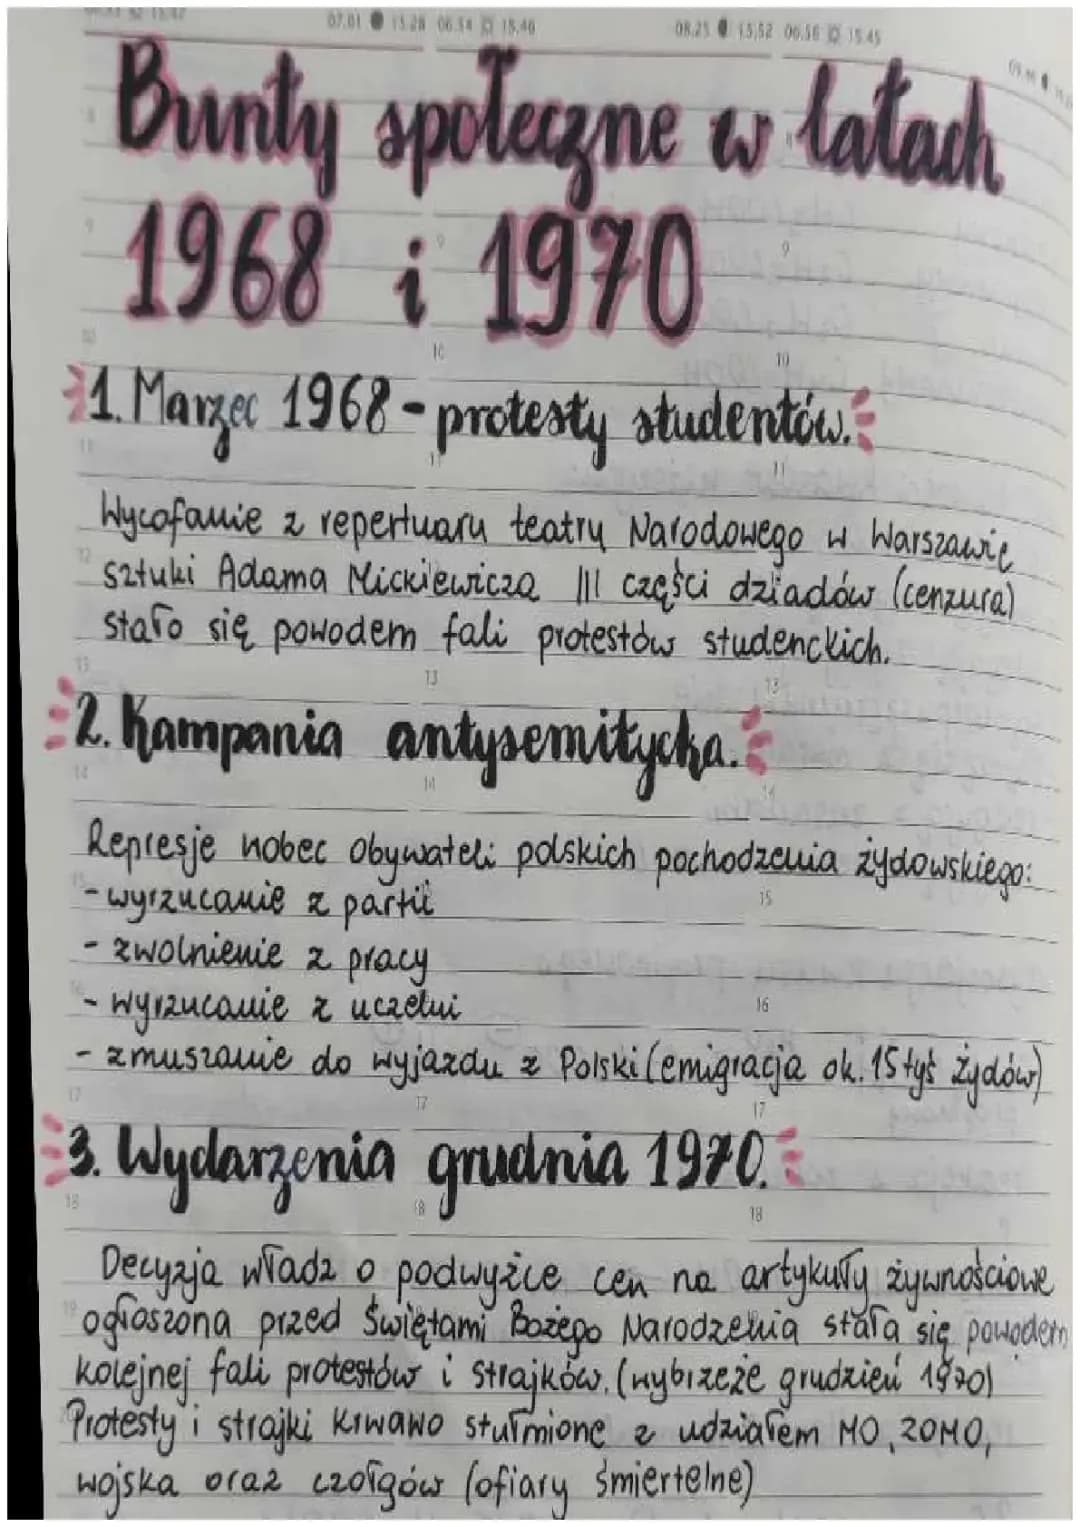 07.01 15.28 06.54 15.46
08.25 15.52 06.56 15.45
Bunty społeczne w latach
1968 i 1970
1. Marzec 1968 - protesty studentów.
Wycofanie z repertuaru teatru Narodowego w Warszawie
sztuki Adama Mickiewicza III części dziadów (cenzura)
stało się powodem fali protestów studenckich.
2. Kampania antysemitycka.
Represje wobec obywateli polskich pochodzenia żydowskiego:
- wyrzucanie z partii
- zwolnienie z pracy
- wyrzucanie z uczelni
- zmuszanie do wyjazdu z Polski (emigracja ok. 15 tyś Żydów)
3. Wydarzenia grudnia 1970.
Decyzja władz o podwyżce cen na artykuły żywnościowe
ogłoszona przed Świętami Bożego Narodzenia stała się powodem
kolejnej fali protestów i strajków. (wybrzeże grudzień 1970)
Protesty i strajki krwawo stłumione z udziałem MO, ZOMO,
wojska oraz czołgów (ofiary śmiertelne)